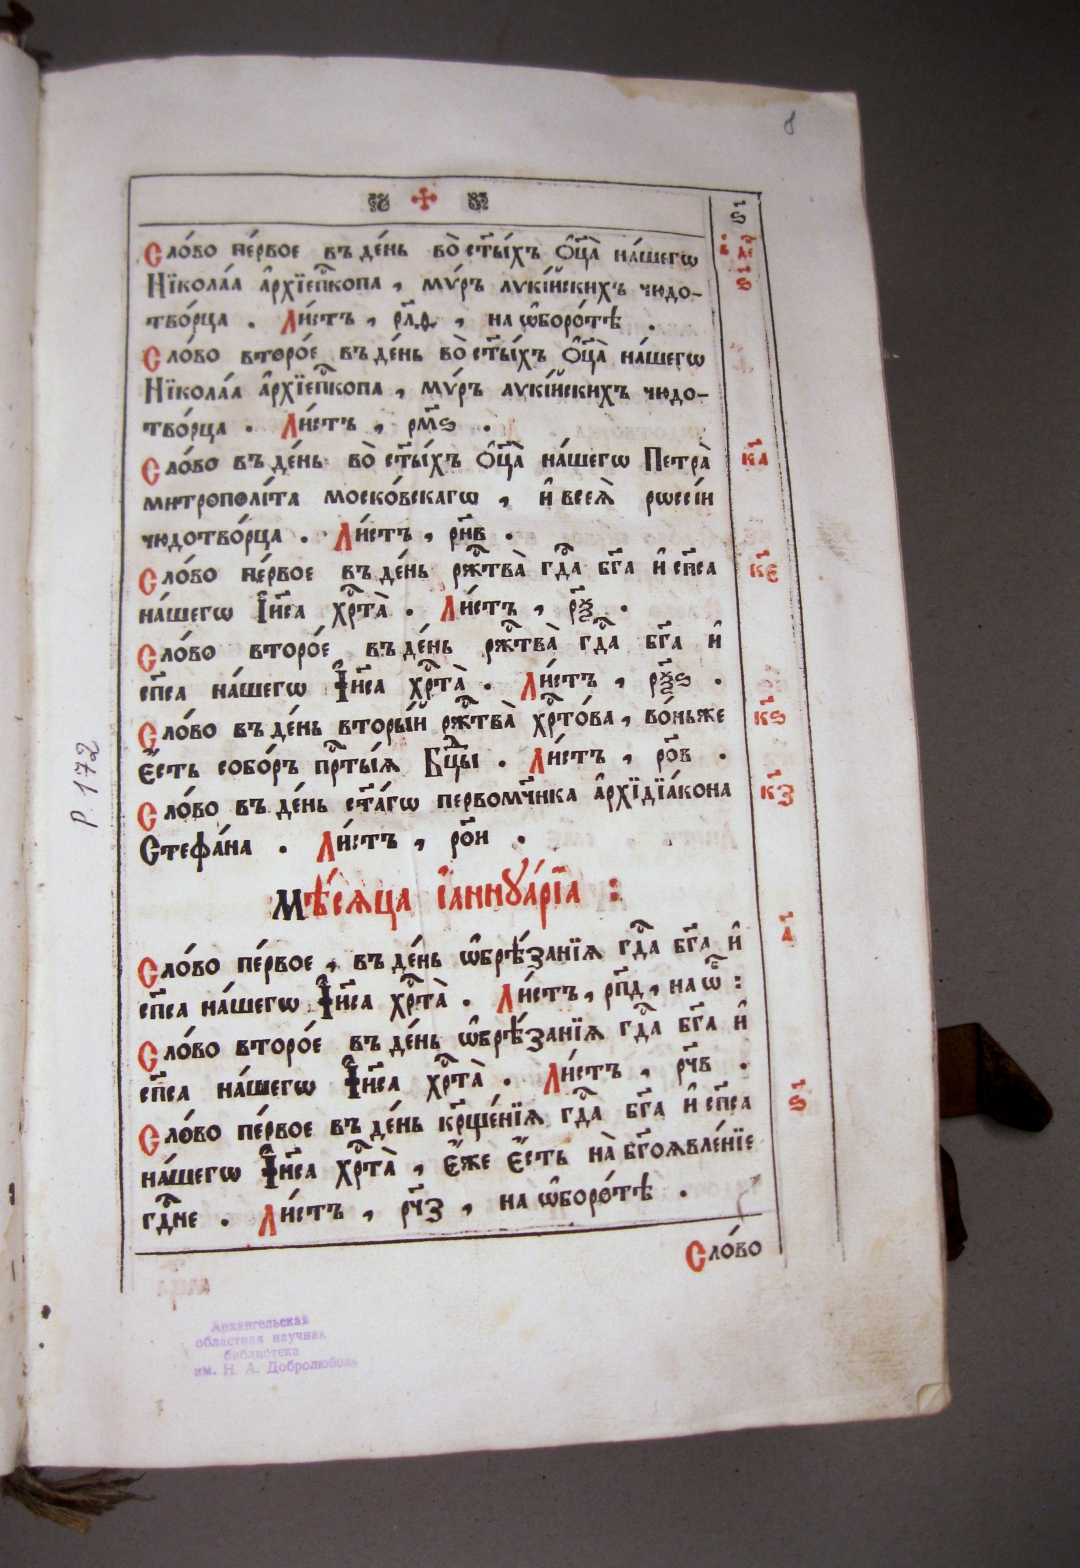 ѕ҃
Сло́во пе́рвое въ де́нь во̀ ст҃ы́хъ ѻ҆ц҃а̀ на́шегѡ
Нїкола́а а҆рхїеп҃копа , мѵ́ръ лѵкі́йскихъ чюдо-
тво́рца . Ли́стъ , рл҃д , на ѡ҆боро́тѣ .
ѕ҃
Сло́во второ́е въ де́нь во̀ ст҃ы́хъ ѻ҆ц҃а̀ на́шегѡ
Нїкола́а а҆рхїеп҃копа , мѵ́ръ лѵкі́йскихъ чюдо-
тво́рца . Ли́стъ , рм҃ѕ .
Сло́во въ де́нь во̀ ст҃ы́хъ ѻ҆ц҃а̀ на́шегѡ Петра̀ к҃а
митрополі́та моско́вскагѡ , и҆ всеѧ̀ рѡссі́и
чюдотво́рца . Ли́стъ , рн҃в .
Сло́во пе́рвое въ де́нь рж҃тва̀ гд҃а бг҃а и҆ сп҃са к҃е
на́шегѡ І҆и҃са хр҃та̀ . Ли́стъ , ро҃ .
Сло́во второ́е въ де́нь рж҃тва̀ гд҃а бг҃а и҆
сп҃са на́шегѡ І҆и҃са хр҃та̀ .  Ли́стъ , .
Сло́во въ де́нь вторы́й рж҃тва̀ хр҃то́ва , во́ньже к҃ѕ
є҆́сть собо́ръ пр҃ты́ѧ Бц҃ы . Ли́стъ , ро҃в .
Сло́во въ де́нь ст҃а́гѡ первомч҃нка а҆рхїдїа́кона к҃з
Стефа́на . Ли́стъ , ро҃и .
Мѣ́сѧца і҆аннꙋа́рїа :
Сло́во пе́рвое , въ де́нь ѡ҆брѣ́занїѧ гд҃а бг҃а и҆ а҃
сп҃са на́шегѡ І҆и҃са хр҃та̀ . Ли́стъ , рп҃д , на ѡ҆́ :
Сло́во второ́е въ де́нь ѡ҆брѣ́занїѧ гд҃а бг҃а и҆
сп҃са на́шегѡ І҆и҃са хр҃та̀ . Ли́стъ , рч҃в .
Сло́во пе́рвое въ де́нь кр҃ще́нїѧ гд҃а бг҃а и҆ сп҃са ѕ҃
на́шегѡ І҆и҃са хр҃та̀ , є҆́же є҆́сть на̀ бг҃оѧвле́нїе
гд҃не . Ли́стъ , рч҃з , на ѡ҆боро́тѣ .
Сло́во
Р. 172
Архангельская
областная научная
библиотека
им. Н. А. Добролюбова